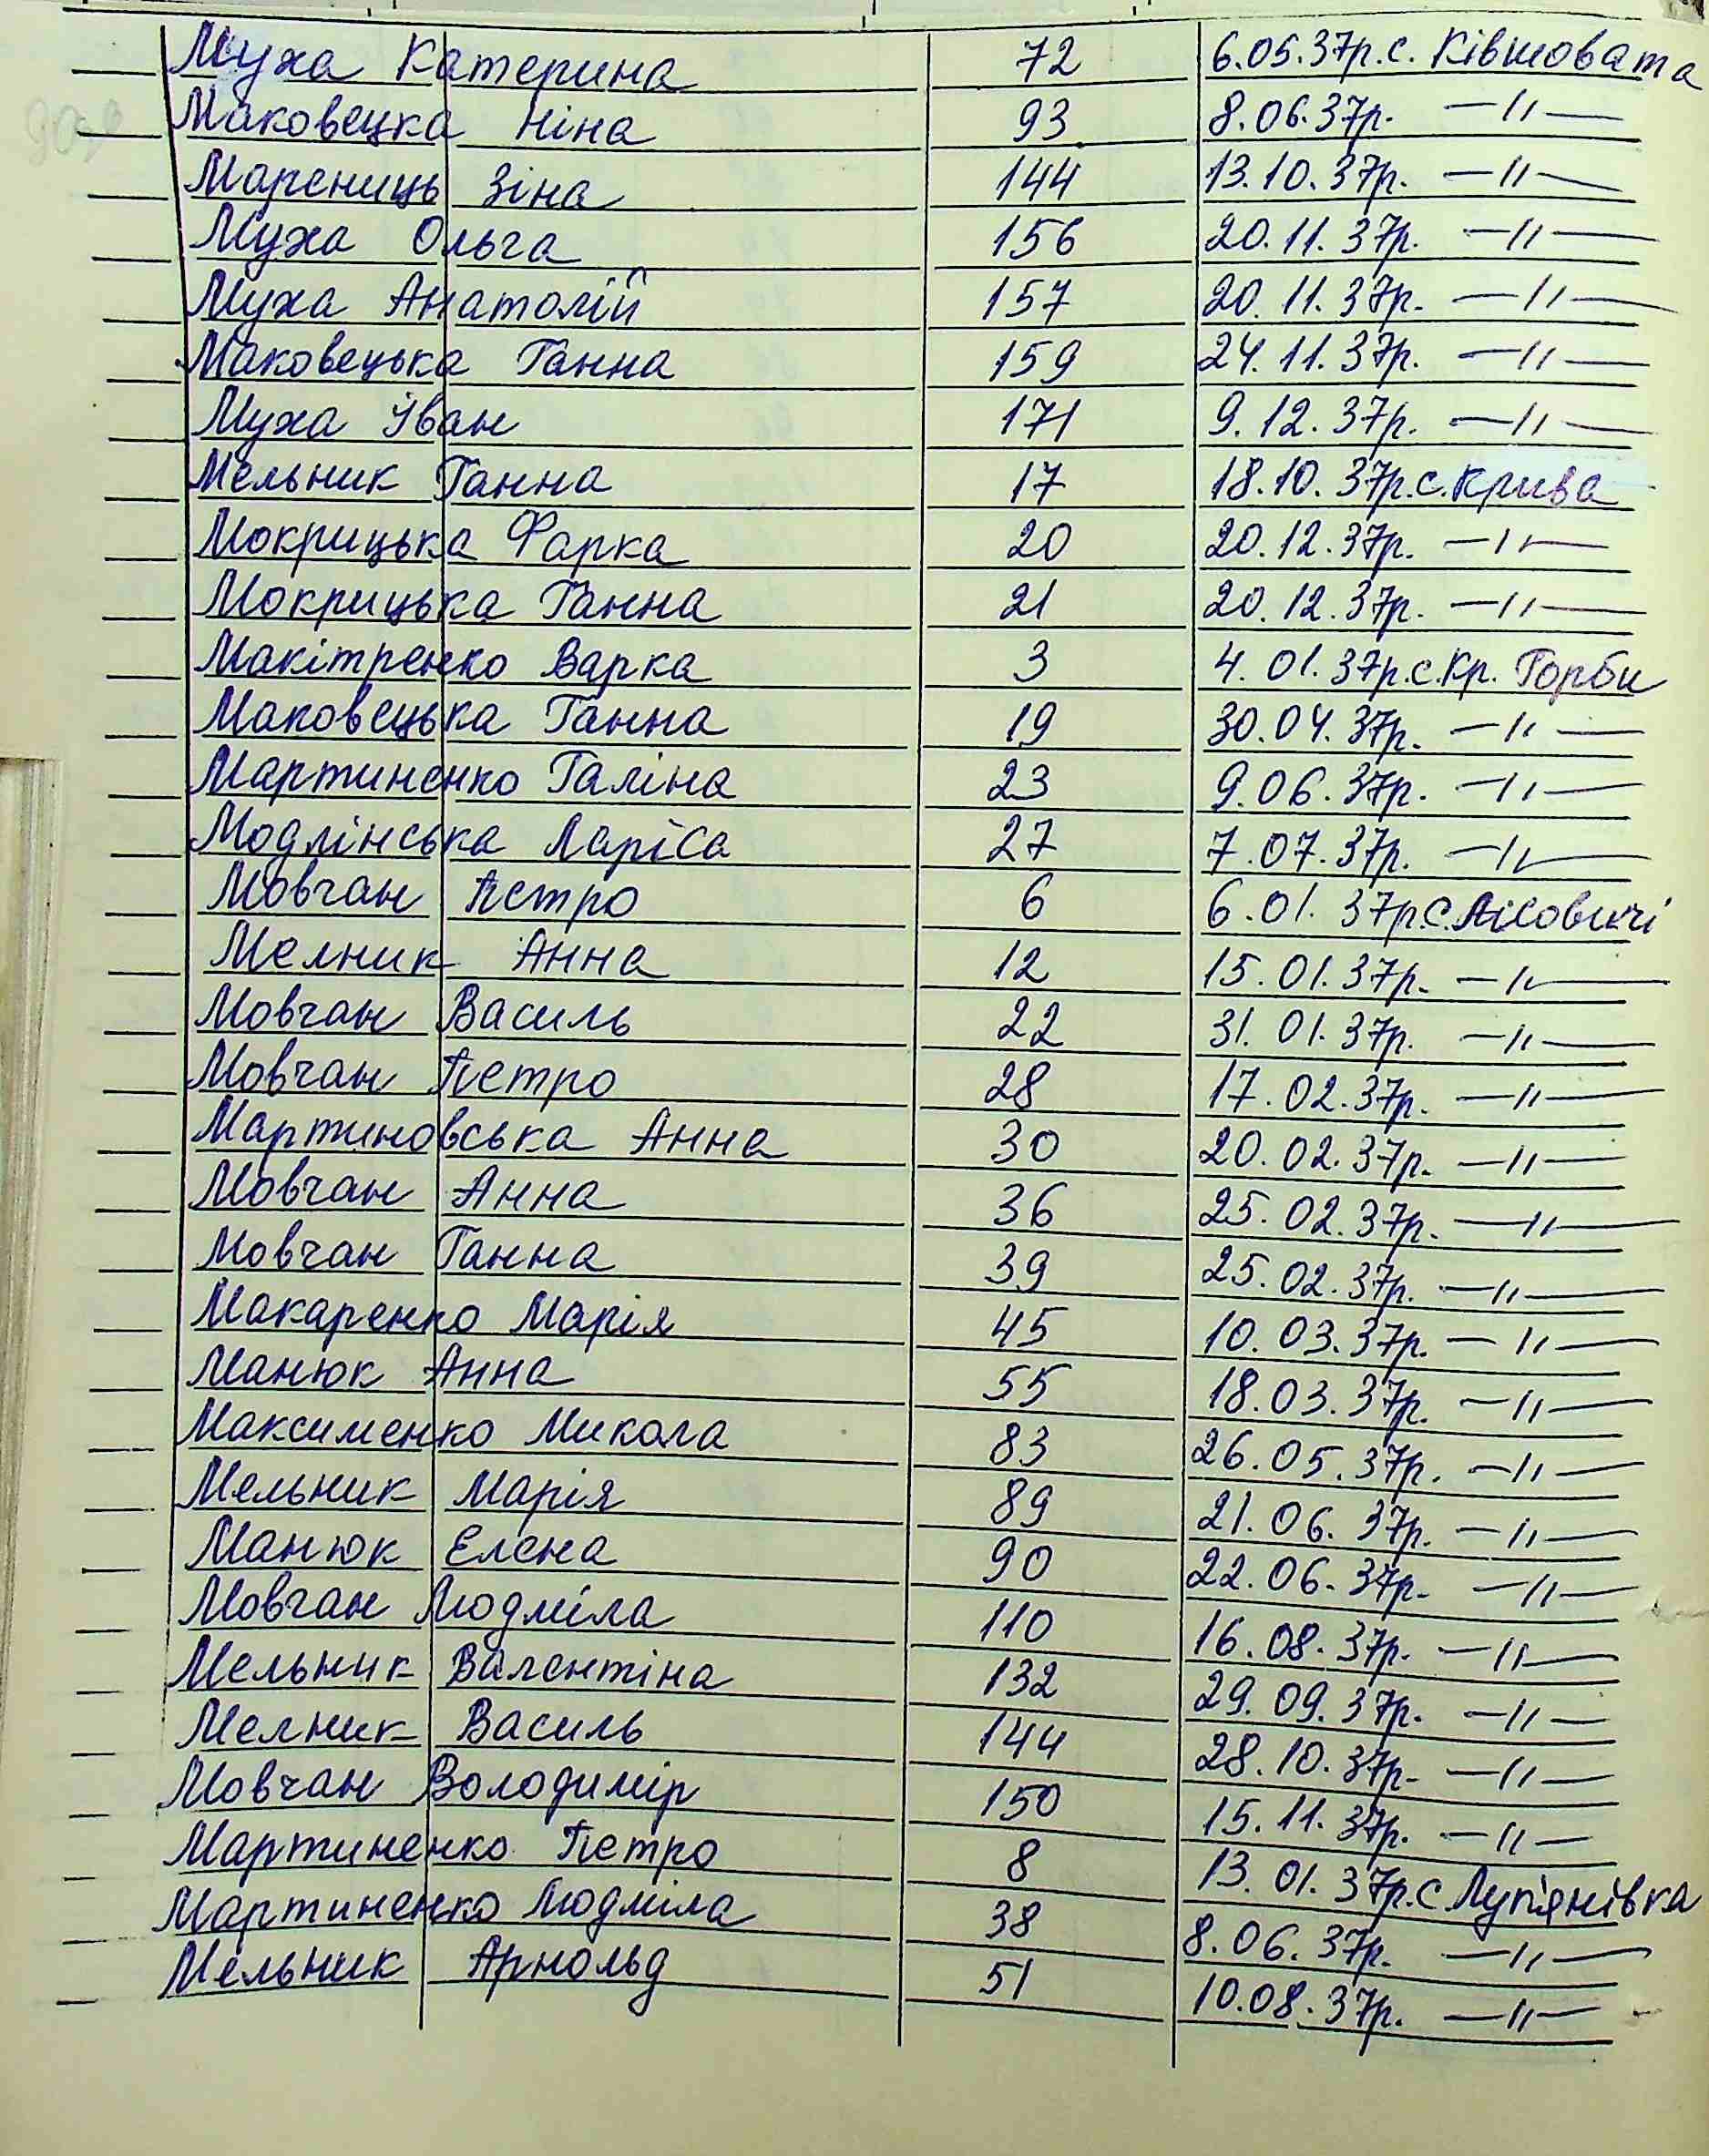 Муха Катерина 72 6.05.37р.с. Ківшовата
Маковецка Ніна 93 8.06.37р. —"—
Марениць Зіна 144 13.10.37р. —"—
Муха Ольга 156 20.11.37р. —"—
Муха Анатолій 157 20.11.37р. —"—
Маковецька Ганна 159 24.11.37р. —"—
Муха Іван 171 9.12.37р. —"—
Мельник Ганна 17 18.10.37р.с.Крива
Мокрицька Фарка 20 20.12.37р. —"—
Мокрицька Ганна 21 20.12.37р. —"—
Макітренко Варка 3 4.01.37р.с.Кр. Горби
Маковецька Ганна 19 30.04.37р. —"—
Мартиненко Галіна 23 9.06.37р. —"—
Модлінська Ларіса 27 7.07.37р. —"—
Мовчан Петро 6 6.01.37р.с.Лісовичі
Мелник Анна 12 15.01.37р. —"—
Мовчан Василь 22 31.01.37р. —"—
Мовчан Петро 28 17.02.37р. —"—
Мартиновська Анна 30 20.02.37р. —"—
Мовчан Анна 36 25.02.37р. —"—
Мовчан Ганна 39 25.02.37р. —"—
Макаренко Марія 45 10.03.37р. —"—
Манюк Анна 55 18.03.37р. —"—
Максименко Микола 83 26.05.37р. —"—
Мельник Марія 89 21.06.37р. —"—
Манюк Елена 90 22.06.37р. —"—
Мовчан Людміла 110 16.08.37р. —"—
Мельник Валентіна 132 29.09.37р. —"—
Мелник Василь 144 28.10.37р. —"—
Мовчан Володимір 150 15.11.37р. —"—
Мартиненко Петро 8 13.01.37р.с Лук'янівка
Мартиненко Людміла 38 8.06.37р. —"—
Мельник Арнольд 51 10.08.37р. —"—